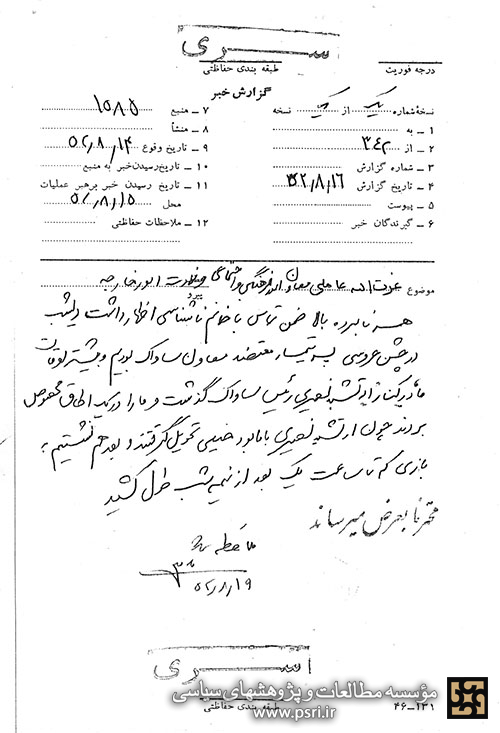 سری
درجه فوریت
طبقه بندی حفاظتی
گزارش خبر
نسخه شماره یک از یک نسخه
۱ ـ به
۲ ـ از ۳۴۲
۳ ـ شماره گزارش
۴ ـ تاریخ گزارش ۵۲/۸/۱۶
۵ ـ پیوست
۶ ـ گیرندگان خبر
۷ ـ منبع ۱۵۸۰۵
۸ ـ منشأ
۹ ـ تاریخ وقوع ۵۲/۸/۱۴
۱۰ ـ تاریخ رسیدن خبر به منبع
۱۱ ـ تاریخ رسیدن خبر برهبر عملیات
محل ۵۲/۸/۱۵
۱۲ ـ ملاحظات حفاظتی
موضوع عزت اله عاملی معاون امور فرهنگی و اجتماعی وزارت امور خارجه
همسر نامبرده بالا ضمن تماس با خانم ناشناسی اظهار داشت دیشب
در جشن عروسی پسر تیمسار معتضد معاون ساواک بودیم و بیشتر اوقات
ما در کنار ارتشبد نصیری رئیس ساواک گذشت و ما را در یک اطاق مخصوص
بردند چون ارتشبد نصیری با ما بود خیلی تحویل گرفتند و بعد هم نشستیم به
بازی که تا ساعت یک بعد از نیمه شب طول کشید
محترماً بعرض میرساند
ملاحظه شد
۵۲/۸/۱۹
سری
طبقه بندی حفاظتی
۱۳۱ــ۴۶
مؤسسه مطالعات و پژوهشهای سیاسی
www.psri.ir